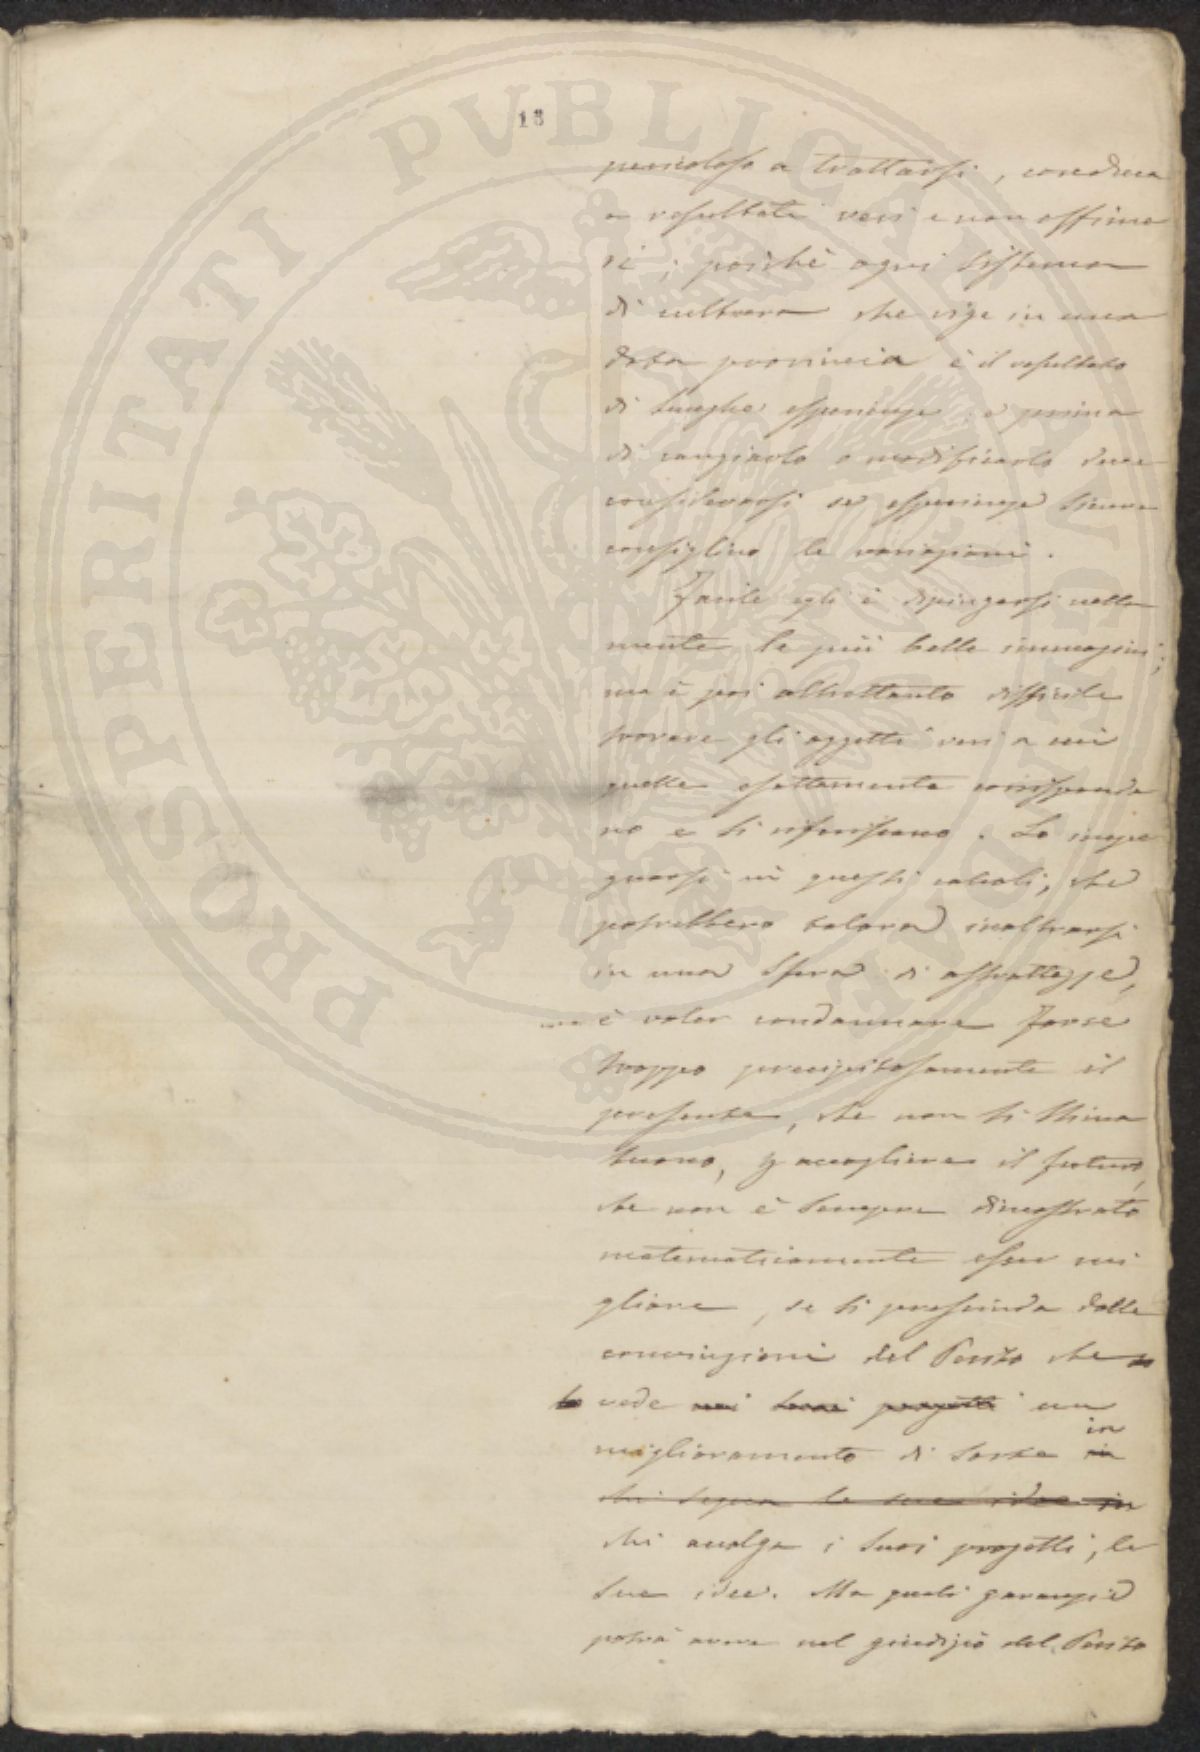 18
PROSPERITATI PVBLICAE AVGENDAE
pericoloso a trattarsi, conduca
a resultati veri e non effime
ri; poichè ogni sistema
di cultura che vige in una
data provincia è il resultato
di lunghe esperienze; e prima
di cangiarlo o modificarlo deve
considerarsi se esperienze sicure
consiglino le variazioni.
Facile egli è dipingersi nella
mente le più belle immagini;
ma è poi altrettanto difficile
trovare gli oggetti veri a cui
quelle esattamente corrisponda
no e si riferiscano. Lo impe
gnarsi in questi calcoli, che
potrebbero talora inoltrarsi
in una sfera di astrattezze,
è voler condannare forse
troppo precipitosamente il
presente, che non si stima
buono, p accogliere il futuro,
che non è sempre dimostrato
matematicamente esser mi
gliore, se si prescinda dalle
convinzioni del Perito che
vede nei suoi progetti un
miglioramento di sorte in
in
chi segua le sue idee in
chi accolga i suoi progetti, le
sue idee. Ma quali garanzie
potrà avere nel giudizio del Perito